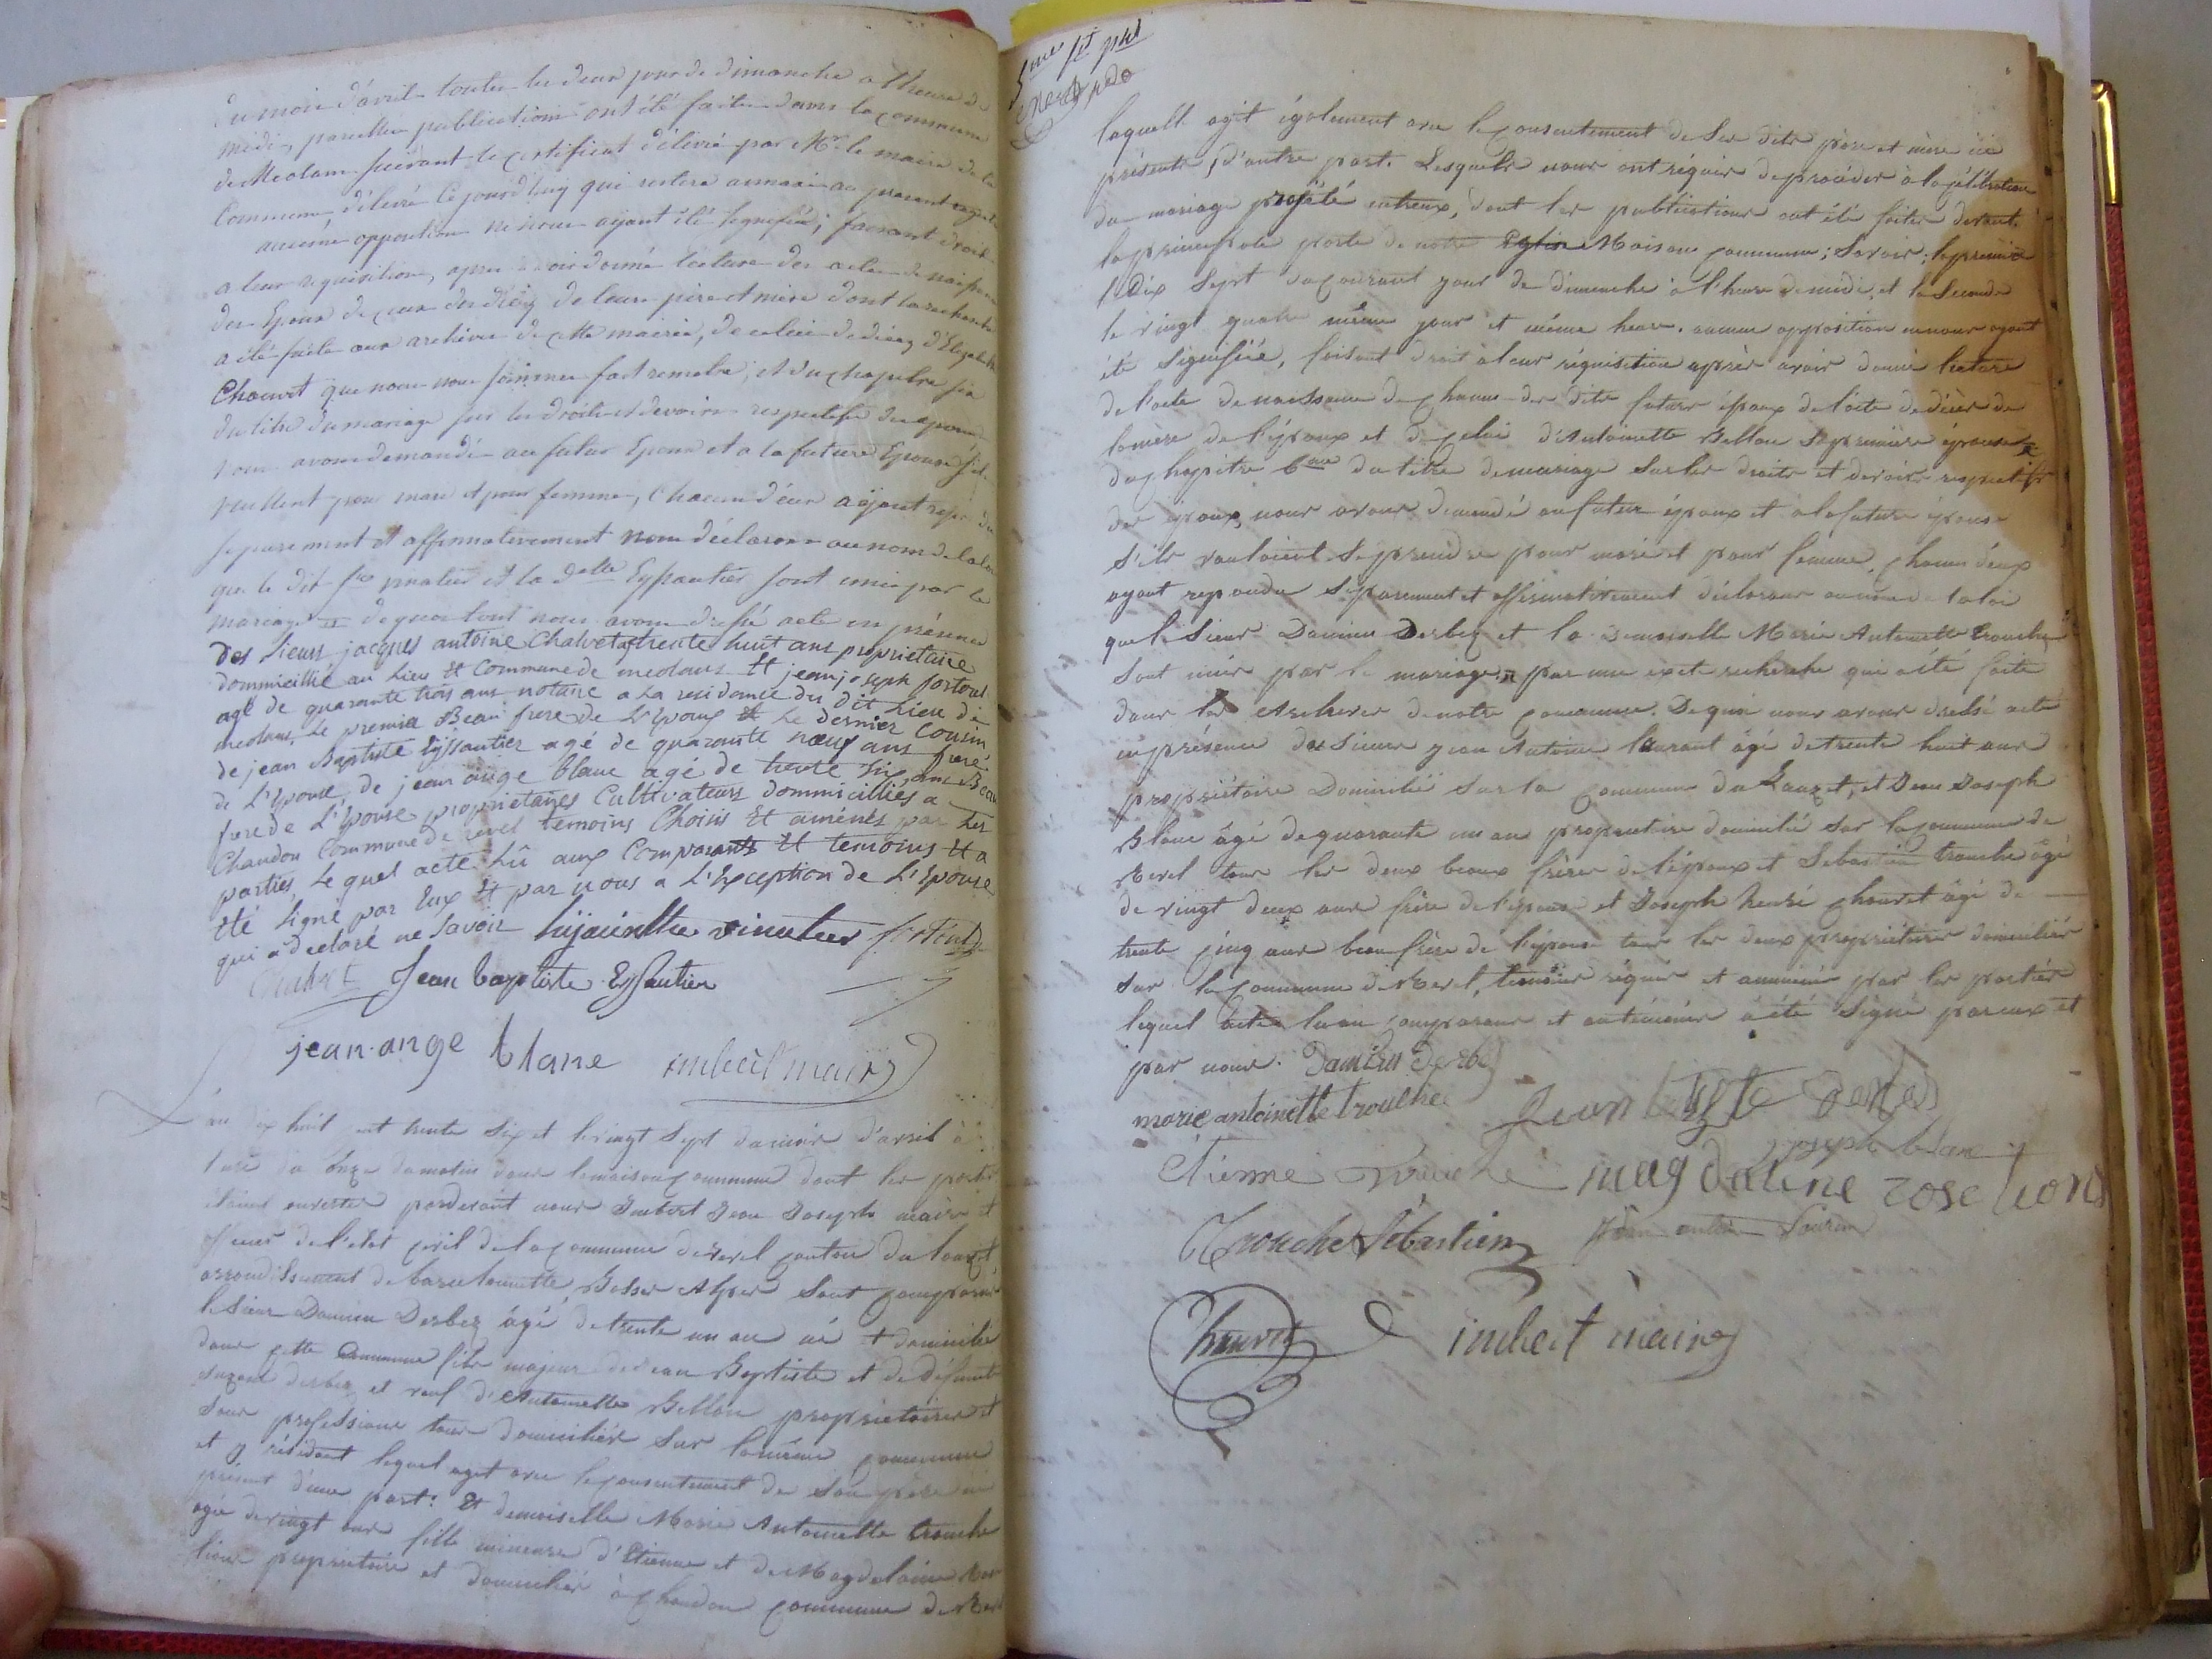 Du mois d'avril toutes les deux jour de dimanche a l'heure de
midi, pareilles publications ont été faites dans la commune
de Meolans suivant le certificat délivré par Mr le maire de la
Commune délivré cejourd'huy qui restera annexé au present
aucune opposition ne nous ayant été signifiée; faisant droit
a leur requisition, apres avoir donné lecture des actes de naissance
des Epoux de ceux des décès de leurs pere et mere dont la recherche
a été faite aux archives de cette mairie, de celui de décès d'Elizabeth
Chauvet que nous nous sommes fait remettre, et du chapitre six
du titre du mariage sur les droits et devoirs respectifs des epoux
nous avons demandé au futur Epoux et a la future Epouse s'il
veullent pour mari et pour femme, chacun d'eux aÿant repondu
separement et affirmativement nous déclarons au nom de la loi
que le dit sr et la dlle Eyssautier sont unis par le
mariage de quoi tout nous avons dressé acte en présence
des sieurs jacques antoine Chalvet trente huit ans proprietaire
dommicillié au Lieu et Commune de meolans Et jean joseph fortoul
agé de quarante trois ans notaire a La residance du dit Lieu de
meolans, Le premier Beau frere de L'epoux et Le dernier Cousin
de jean Baptiste Eyssautier agé de quarante neuf ans frere
de L'Epouse, de jean ange blanc agé de trente six ans Beau
frere de L'Epouse proprietaires Cultivateurs dommicilliés a
Chaudon Commune de revel temoins Choisis Et amenés par Les
parties, Le quel acte Lû aux Comparants Et temoins Et a
Eté signé par Eux Et par nous a L'Exception de L'Epouse
qui a declaré ne savoir hijacinthe fortoul
Chalvet Jean baptiste Eyssautier
jean-ange blanc imbert maire
L'an dix huit cent trente six et le vingt sept du mois d'avril à
l'heure de onze du matin dans la maison commune dont les portes
étaient ouvertes pardevant nous Imbert Jean Joseph maire et
officier de l'etat civil de la commune de revel canton du lauzet,
arrondissement de barcelonnette, Basses Alpes sont comparus
le sieur Damien Derbez âgé de trente un an né et domicilié
dans cette commune fils majeur de Jean Baptiste et de défunte
Suzane derbez et veuf d'Antoinette Bellon proprietaires et
sans professions tous domiciliés sur la même commune
et y résidant lequel agit avec le consentement de son père ici
présent d'une part: Et demoiselle Marie Antoinette trouche
agée de vingt ans fille mineure d'Etienne et de Magdelaine Rose
lions proprietaire et domiciliés à Chaudon commune de Revel
laquelle agit également avec le consentement de ses dits père et mère ici
présents, d'autre part. Lesquels nous ont réquis de procéder à la célébration
du mariage projété entreux, dont les publications ont été faites devant
la principale porte de notre Eglise Maison commune; Savoir; la premiere
le Dix Sept du courant jour de dimanche à l'heure de midi, et la Seconde
le vingt quatre même jour et même heure. aucune opposition ne nous ayant
été signifiée, faisant droit à leur réquisition après avoir donné lecture
de l'acte de naissance de chacun des dits futurs époux de l'acte de décès de
la mère de l'époux et de celui d'Antoinette Bellon sa première épouse
du chapitre 6me du titre de mariage sur les droits et devoirs respectifs
des époux, nous avons demandé au futur époux et à la future épouse
S'ils vouloient se prendre pour mari et pour femme, chacun d'eux
ayant repondu séparement et affirmativement déclarons au nom de la loi
que le Sieur Damien Derbez et la Demoiselle Marie Antoinette trouche
sont unis par le mariage par une exacte recherche qui a été faite
dans les Archives de notre commune. De quoi nous avons dressé acte
en présence des Sieurs Jean Antoine laurant âgé de trente huit ans
propriétaire Domicilié sur la commune du Lauzet, et Jean Joseph
Blanc âgé de quarante un ans propriétaire domicilié sur la commune de
Revel tous les deux beaux frères de l'époux et Sébastien trouche âgé
de vingt deux ans frère de l'épouse et Joseph honoré chauvet âgé de
trente cinq ans beau frère de l'épouse tous les deux propriétaires domiciliés
sur la commune de Revel, témoins réquis et amménés par les parties
lequel acte lu aux comparans et au témoins a été signé par eux et
par nous. Damien Derbez
marie antoinette trouche Jean batiste derbez
joseph blanc
étienne trouche magdaline rose lions
Trouche Sébastien
Chauvet imbert maire